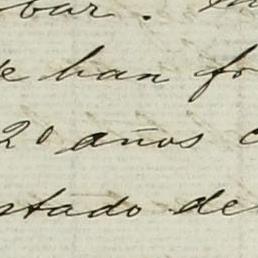 bar.
e han fo
20 años c
stado de